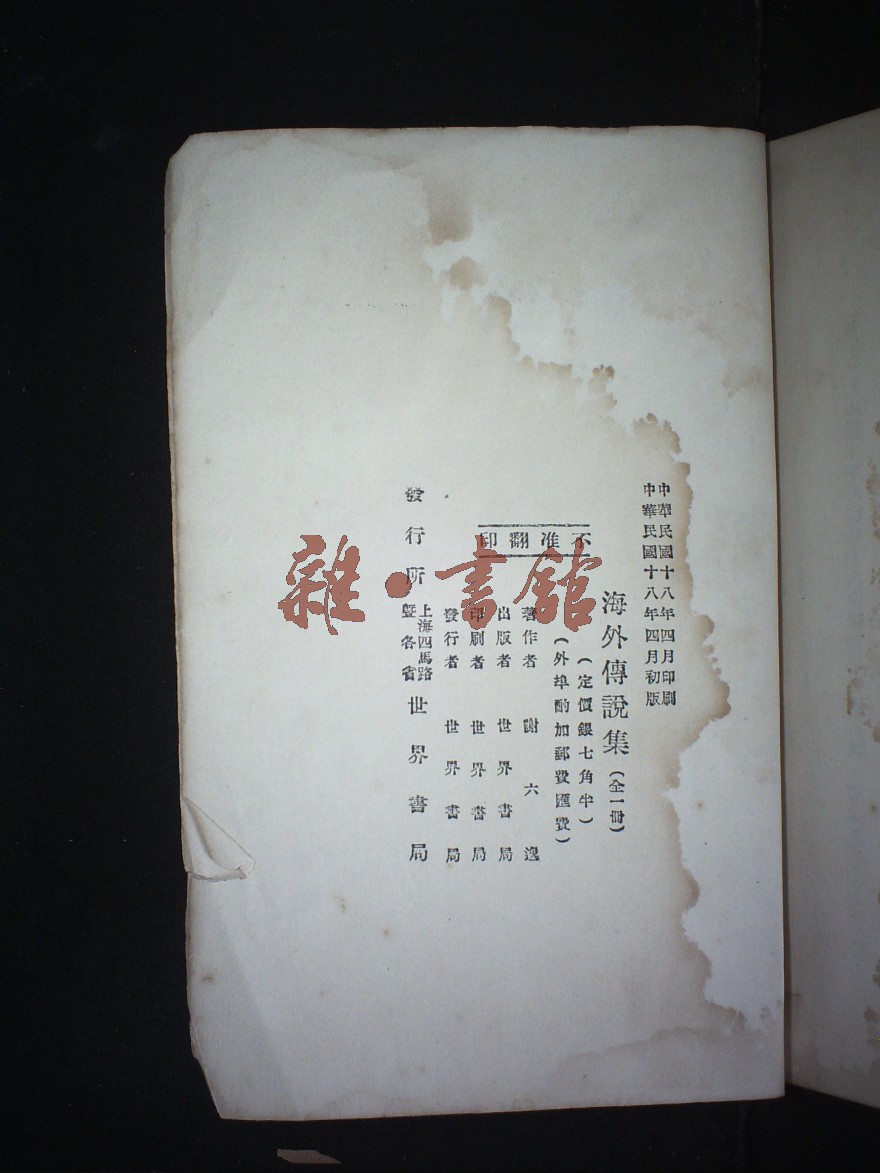 中華民國十八年四月印刷
中華民國十八年四月初版
海外傳說集（全一冊）
（定價銀七角半）
（外埠酌加郵費匯費）
不准翻印
著作者 謝六逸
出版者 世界書局
印刷者 世界書局
發行者 世界書局
發行所 上海四馬路暨各省 世界書局
雜·書館